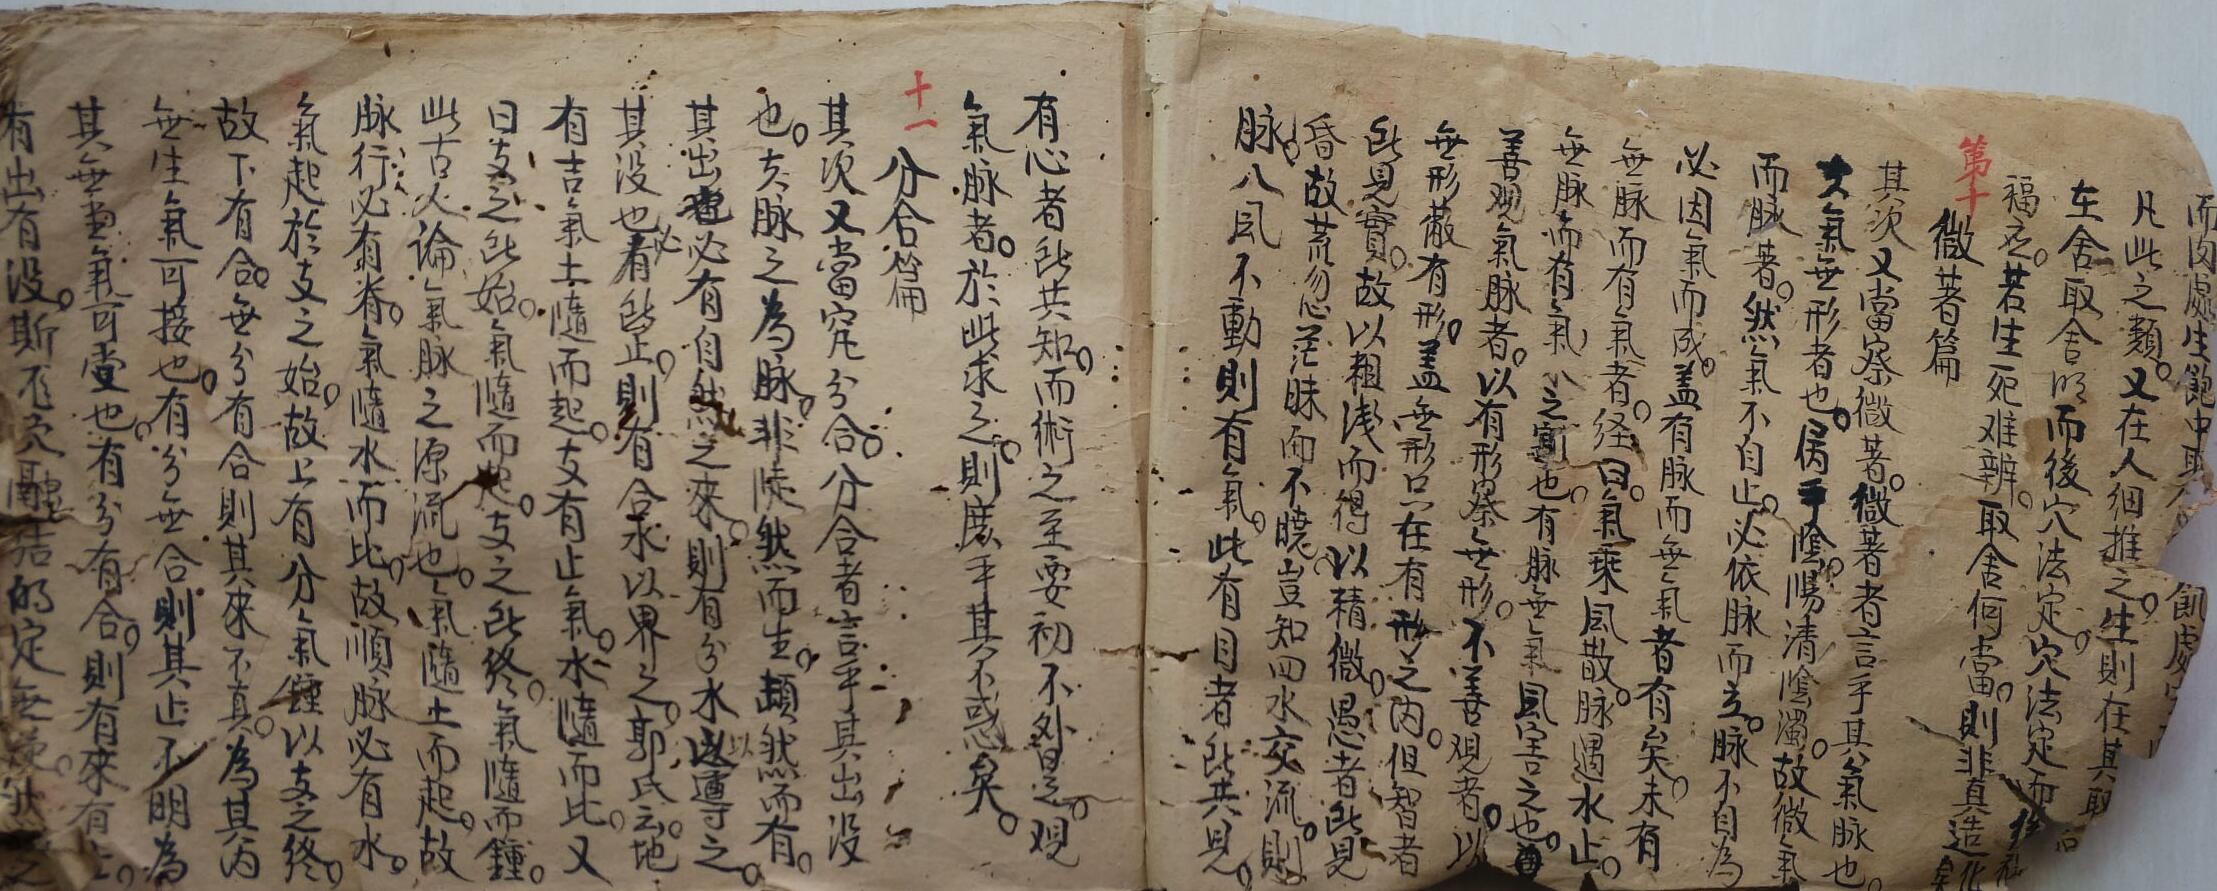 而内處生飽中取 飢處
凡此之類。又在人細推之。生則在其取
在舍取舍明而後穴法定。穴法定而
福至。若生死难辨。取舍何當。則非真造化矣
第十
微著篇
其次又當察微著。微著者言乎其氣脉也。
夫氣無形者也。属乎陰陽清陰濁。故微氣
而脉著。然氣不自止。必依脉而立。脉不自為
必因氣而成。盖有脉而無氣者有矣。未有
無脉而有氣者。经曰。氣乗風散。脉遇水止。
無脉而有氣 之 也。有脉無氣 風害之也。
善观氣脉者。以有形察無形。不善观者。以
無形蔽有形。盖無形只在有形之内。但智者
所見實。故以粗浅而得以精微。愚者所見
昏。故荒忽茫昧而不曉。豈知四水交流。則
脉。八風不動則有氣。此有目者所共見。
有心者所共知。而術之至要初不外是。观
氣脉者。於此求之。則庶乎其不惑矣。
十一
分合篇
其次又當究分合。分合者言乎其出没
也。夫脉之為脉。非徒然而生。頼然而有。
其出也必有自然之來。則有分水以導之。
其没也必有所止。則有合水以界之。郭氏云。地
有吉氣土隨而起。支有止氣。水隨而比。又
曰支之所始。氣隨而起。支之所终。氣隨而鍾。
此古人論氣脉之源流也。氣隨土而起。故
脉行必有脊。氣隨水而比。故順脉必有水。
氣起於支之始。故上有分。氣鍾以支之终。
故下有合。無分有合則其來不真。為其内
無生氣可接也。有分無合則其止不明。為
其無 氣可受也。有分有合。則有來有止。
有出有没。斯 穴融结的定無疑 之